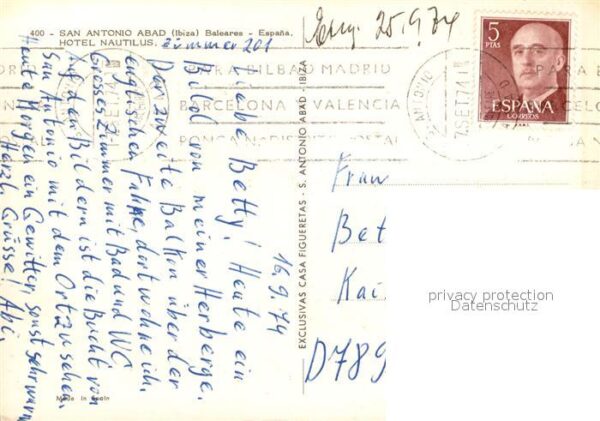 400 - SAN ANTONIO ABAD (Ibiza) Baleares - España.
HOTEL NAUTILUS.
Zimmer 201
Eing. 25.9.74
5
PTAS
ESPAÑA
CORREOS
PARA BILBAO MADRID
BARCELONA VALENCIA
PONGA Nº DISTRITO POSTAL
S. ANTONIO
SET.74
16.9.74
Liebe Betty! Heute ein
Bild von meiner Herberge.
Der zweite Balkon über der
englischen Fahne, dort wohne ich.
Grosses Zimmer mit Bad und WC
Auf den Bildern ist die Bucht von
San Antonio mit dem Ort zu sehen.
Heute Morgen ein Gewitter, sonst sehr warm
Herzl. Grüsse! Abi.
EXCLUSIVAS CASA FIGUERETAS - S. ANTONIO ABAD - IBIZA
Frau
Bet
Kai
D789
privacy protection
Datenschutz
Made in Spain